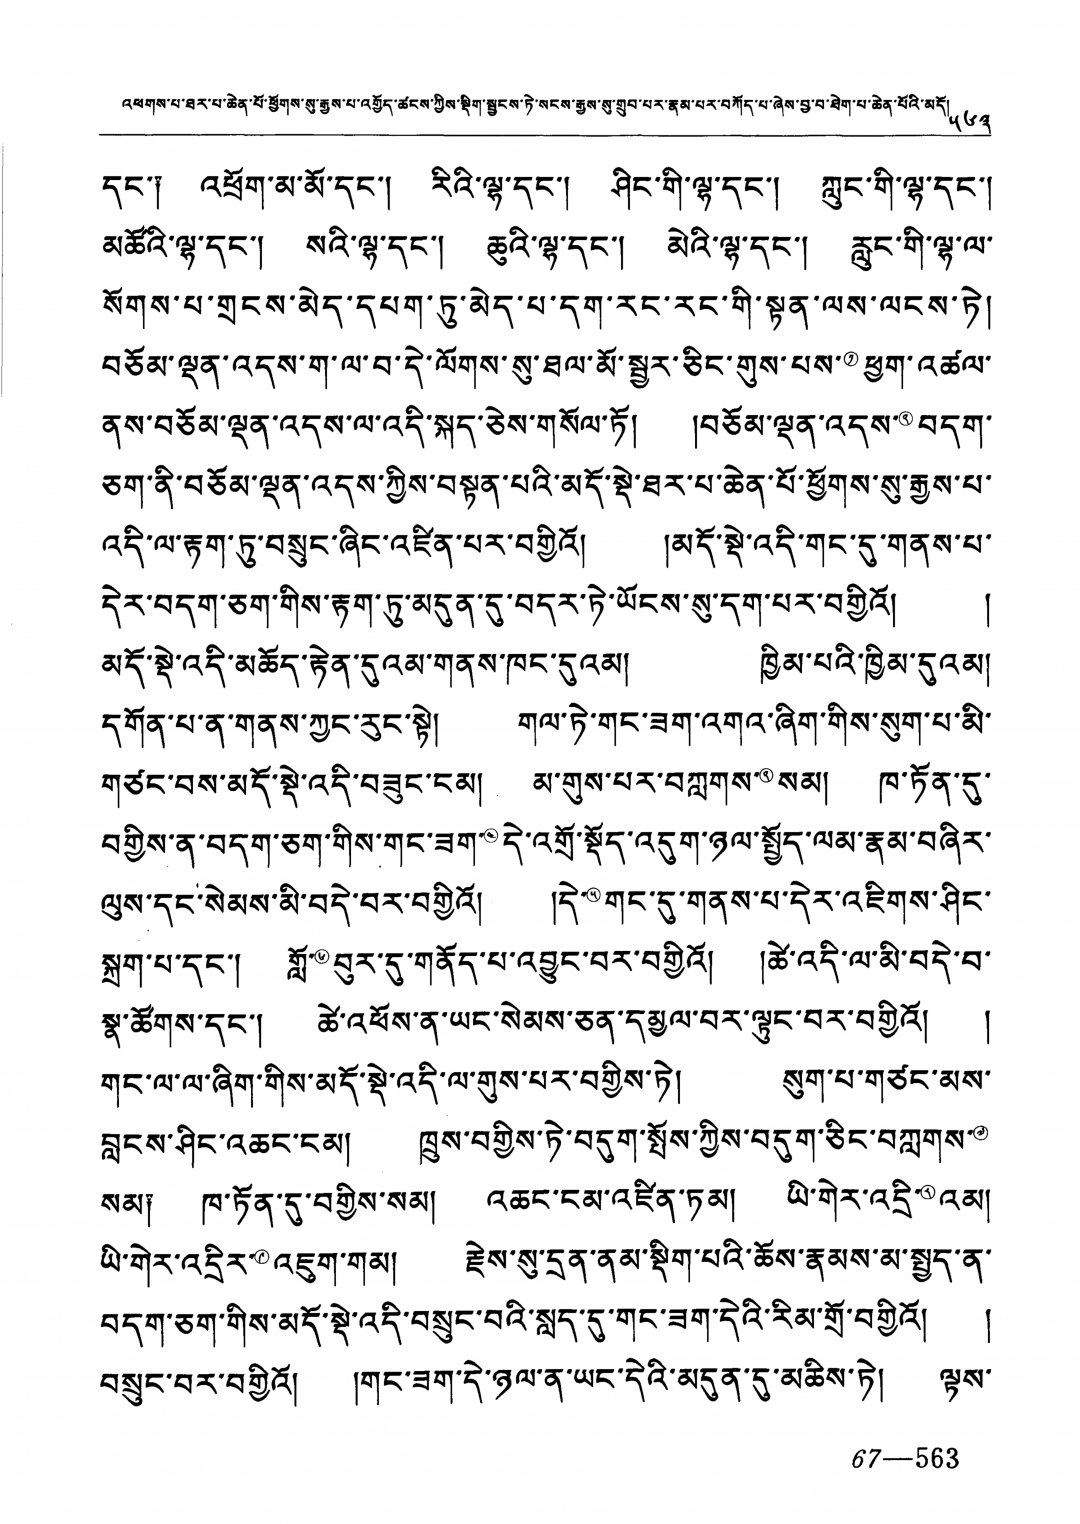 འཕགས་པ་ཐར་པ་ཆེན་པོ་ཕྱོགས་སུ་རྒྱས་པ་འགྱོད་ཚངས་ཀྱིས་སྡིག་སྦྱངས་ཏེ་སངས་རྒྱས་སུ་གྲུབ་པར་རྣམ་པར་བཀོད་པ་ཞེས་བྱ་བ་ཐེག་པ་ཆེན་པོའི་མདོ།
༥༦༣
དང་༑ འཕྲོག་མ་མོ་དང་། རིའི་ལྷ་དང་། ཤིང་གི་ལྷ་དང་། ཀླུང་གི་ལྷ་དང་།
མཚོའི་ལྷ་དང་། སའི་ལྷ་དང་། ཆུའི་ལྷ་དང་། མེའི་ལྷ་དང་། རླུང་གི་ལྷ་ལ་
སོགས་པ་གྲངས་མེད་དཔག་ཏུ་མེད་པ་དག་རང་རང་གི་སྟན་ལས་ལངས་ཏེ།
བཅོམ་ལྡན་འདས་ག་ལ་བ་དེ་ལོགས་སུ་ཐལ་མོ་སྦྱར་ཅིང་གུས་པས་①ཕྱག་འཚལ་
ནས་བཅོམ་ལྡན་འདས་ལ་འདི་སྐད་ཅེས་གསོལ་ཏོ། །བཅོམ་ལྡན་འདས་②བདག་
ཅག་ནི་བཅོམ་ལྡན་འདས་ཀྱིས་བསྟན་པའི་མདོ་སྡེ་ཐར་པ་ཆེན་པོ་ཕྱོགས་སུ་རྒྱས་པ་
འདི་ལ་རྟག་ཏུ་བསྲུང་ཞིང་འཛིན་པར་བགྱིའོ། །མདོ་སྡེ་འདི་གང་དུ་གནས་པ་
དེར་བདག་ཅག་གིས་རྟག་ཏུ་མདུན་དུ་བདར་ཏེ་ཡོངས་སུ་དག་པར་བགྱིའོ། །
མདོ་སྡེ་འདི་མཆོད་རྟེན་དུའམ་གནས་ཁང་དུའམ། ཁྱིམ་པའི་ཁྱིམ་དུའམ།
དགོན་པ་ན་གནས་ཀྱང་རུང་སྟེ། གལ་ཏེ་གང་ཟག་འགའ་ཞིག་གིས་སུག་པ་མི་
གཙང་བས་མདོ་སྡེ་འདི་བཟུང་ངམ། མ་གུས་པར་བཀླགས་③སམ། ཁ་ཏོན་དུ་
བགྱིས་ན་བདག་ཅག་གིས་གང་ཟག་④དེ་འགྲོ་སྡོད་འདུག་ཉལ་སྤྱོད་ལམ་རྣམ་བཞིར་
ལུས་དང་སེམས་མི་བདེ་བར་བགྱིའོ། །དེ་⑤གང་དུ་གནས་པ་དེར་འཇིགས་ཤིང་
སྐྲག་པ་དང་། གློ་⑥བུར་དུ་གནོད་པ་འབྱུང་བར་བགྱིའོ། །ཚེ་འདི་ལ་མི་བདེ་བ་
སྣ་ཚོགས་དང་། ཚེ་འཕོས་ན་ཡང་སེམས་ཅན་དམྱལ་བར་ལྟུང་བར་བགྱིའོ། །
གང་ལ་ལ་ཞིག་གིས་མདོ་སྡེ་འདི་ལ་གུས་པར་བགྱིས་ཏེ། སུག་པ་གཙང་མས་
བླངས་ཤིང་འཆང་ངམ། ཁྲུས་བགྱིས་ཏེ་བདུག་སྤོས་ཀྱིས་བདུག་ཅིང་བཀླགས་⑦
སམ༑ ཁ་ཏོན་དུ་བགྱིས་སམ། འཆང་ངམ་འཛིན་ཏམ། ཡི་གེར་འདྲི་⑧འམ།
ཡི་གེར་འདྲིར་⑨འཇུག་གམ། རྗེས་སུ་དྲན་ནམ་སྡིག་པའི་ཆོས་རྣམས་མ་སྤྱད་ན་
བདག་ཅག་གིས་མདོ་སྡེ་འདི་བསྲུང་བའི་སླད་དུ་གང་ཟག་དེའི་རིམ་གྲོ་བགྱིའོ། །
བསྲུང་བར་བགྱིའོ། །གང་ཟག་དེ་ཉལ་ན་ཡང་དེའི་མདུན་དུ་མཆིས་ཏེ། ལྟས་
67—563